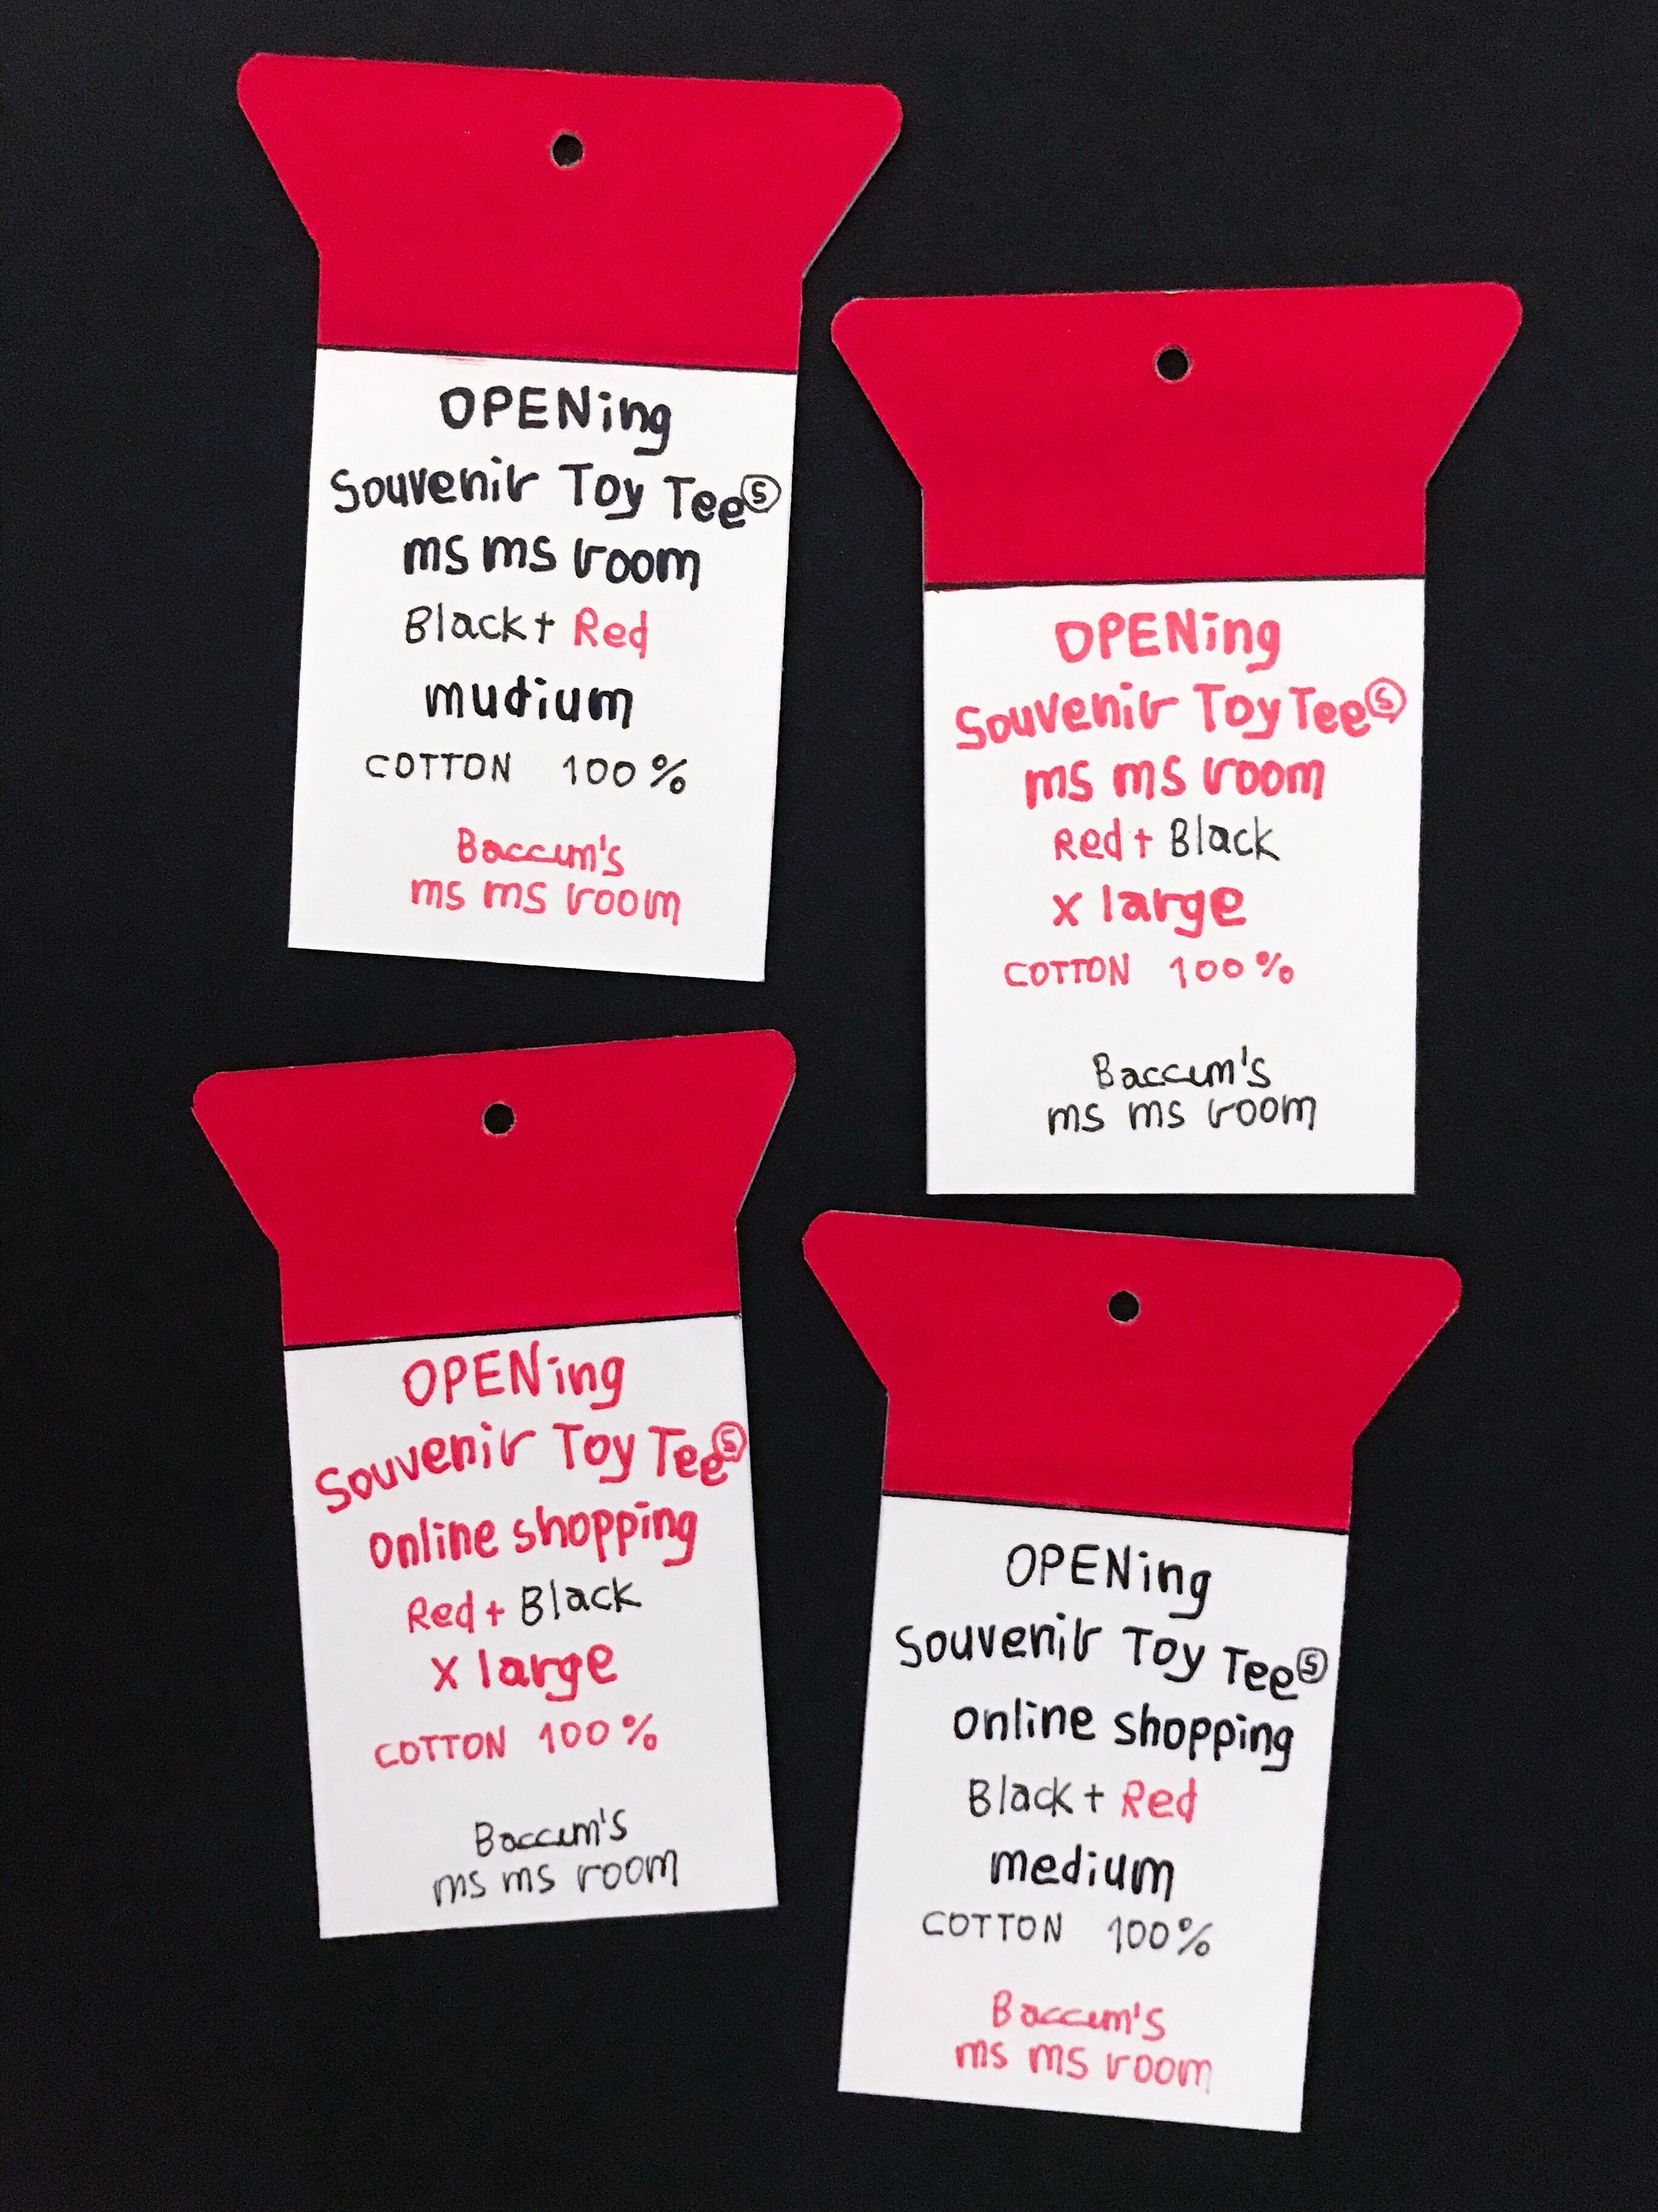 OPENing
Souvenir Toy TeeⓈ
ms ms room
Black + Red
mudium
COTTON 100%
Baccum's
ms ms room
OPENing
Souvenir Toy TeeⓈ
ms ms room
Red + Black
x large
COTTON 100%
Baccum's
ms ms room
OPENing
Souvenir Toy TeeⓈ
online shopping
Red + Black
x large
COTTON 100%
Baccum's
ms ms room
OPENing
Souvenir Toy TeeⓈ
online shopping
Black + Red
medium
COTTON 100%
Baccum's
ms ms room